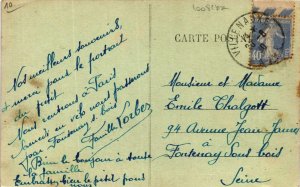 10
CARTE POSTALE
Nos meilleurs souvenirs,
merci pour le portrait
du petit
Nous rentrons à Paris
Samedi en 8 nous passerons
au Fontenay sous bois
Famille Forbes
Bien le bonjour à toute
la famille
Embrassez bien le petit pour
nous
Monsieur et Madame
Emile Thalgott
94 Avenue Jean Jaurès
à
Fontenay Sous bois
Seine